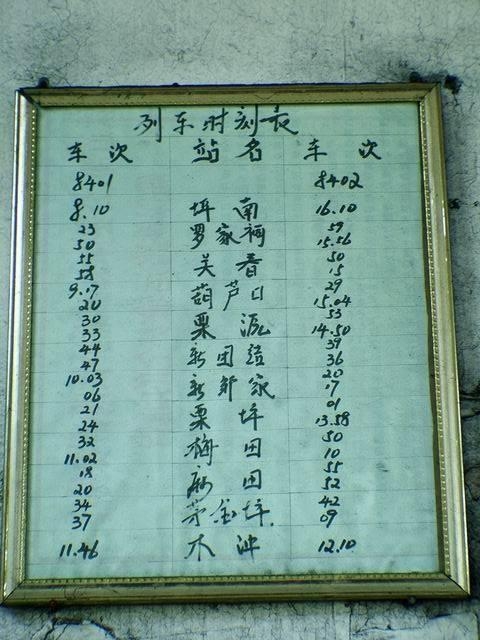 列车时刻表
车次 站名 车次
8401 8402
8.10 坪南 16.10
23 罗家祠 59
50 15.56
55 关 50
58 15
9.17 葫芦口 29
20 15.04
30 栗源 53
33 14.50
44 新田 39
47 36
10.03 新 家 20
06 17
21 栗坪 01
24 13.58
32 梅田 50
11.02 10
18 麻田 55
20 52
34 茅金坪 42
37 09
11.46 木冲 12.10